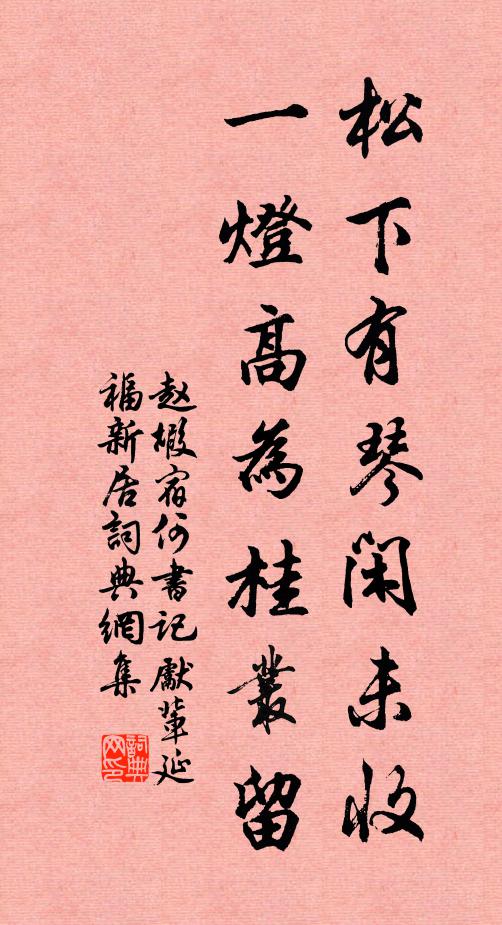 松下有琴閑未收
一燈高為桂叢留
赵嘏宿何書記獻輩延
福新居詞典網集
詞典网印